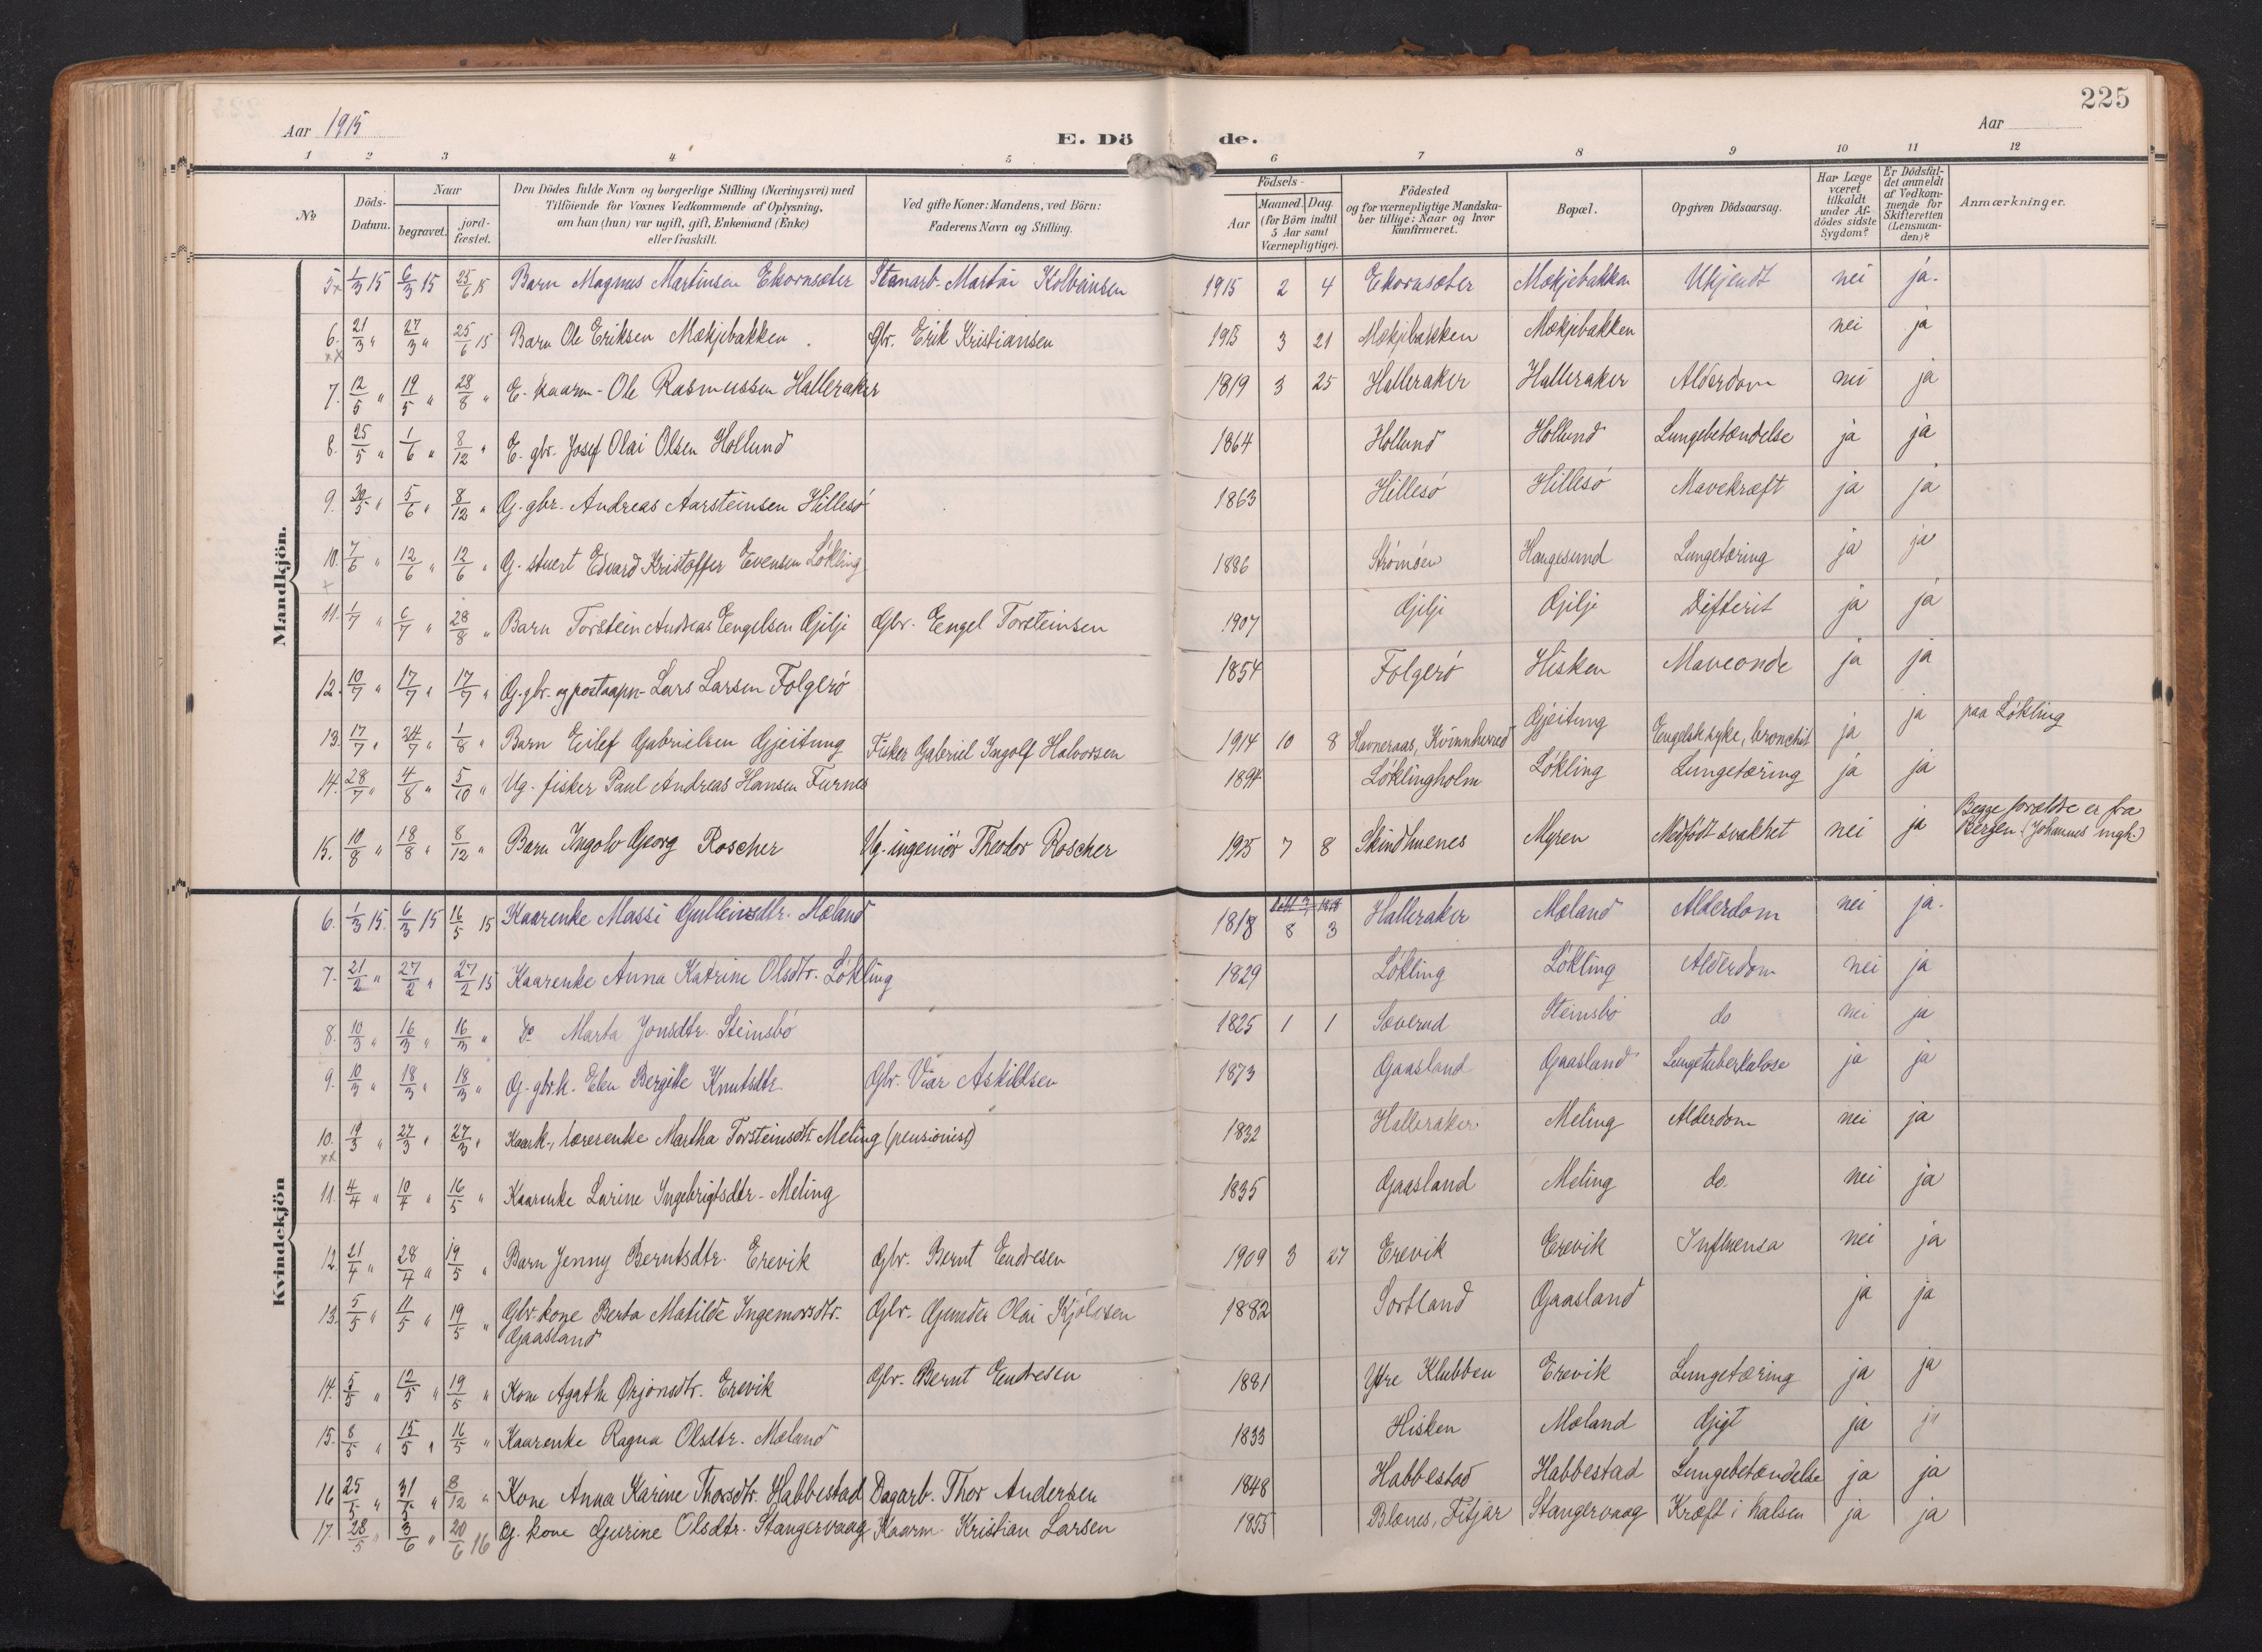 225
Aar 1915 E. Dö de. Aar
1 2 3 4 5 6 7 8 9 10 11 12
No Döds-Datum. Naar begravet. jord-fæstet. Den Dödes fulde Navn og borgerlige Stilling (Næringsvei) med Tilföiende for Voxnes Vedkommende af Oplysning, om han (hun) var ugift, gift, Enkemand (Enke) eller fraskilt. Ved gifte Koner: Mandens, ved Börn: Faderens Navn og Stilling. Födsels- Aar Maaned. Dag. (for Börn indtil 5 Aar samt Værnepligtige). Födested og for værnepligtige Mandskaber tillige: Naar og hvor Konfirmeret. Bopæl. Opgiven Dödsaarsag. Har Læge været tilkaldt under Afdödes sidste Sygdom? Er Dödsfaldet anmeldt af Vedkommende for Skifteretten (Lensmanden)? Anmærkninger.
Mandkjön.
5. 1/3 15 6/3 15 25/6 15 Barn Magnus Martinsen Ekornsæter Stenarb. Martin Kolbeinsen 1915 2 4 Ekornsæter Mækjebakken Ukjendt nei ja.
6. 21/3 " 27/3 " 25/6 15 Barn Ole Eriksen Mækjebakken. Gbr. Erik Kristiansen 1915 3 21 Mækjebakken Mækjebakken nei ja
7. 12/5 " 19/5 " 28/8 " E. kaarm- Ole Rasmussen Halleraker 1819 3 25 Halleraker Halleraker Alderdom nei ja
8. 25/5 " 1/6 " 8/12 " E. gbr. Josef Olai Olsen Hollund 1864 Hollund Hollund Lungebetændelse ja ja
9. 30/5 " 5/6 " 8/12 " G. gbr. Andreas Aarsteinsen Hillesö 1863 Hillesö Hillesö Mavekræft ja ja
10. 7/6 " 12/6 " 12/6 " G. stuert Edvard Kristoffer Evensen Lökling 1886 Strömöen Haugesund Lungetæring ja ja
11. 1/7 " 6/7 " 28/8 " Barn Torstein Andreas Engelsen Gilje Gbr. Engel Torsteinsen 1907 Gilje Gilje Difterit ja ja
12. 10/7 " 17/7 " 17/7 " G. gbr. og postaapn- Lars Larsen Folgerö 1854 Folgerö Hisken Maveonde ja ja
13. 17/7 " 24/7 " 1/8 " Barn Eilef Gabrielsen Gjeitung Fisker Gabriel Ingolf Halvorsen 1914 10 8 Havneraas, Kvinnherred Gjeitung Engelsk syke, bronchit ja ja paa Lökling
14. 28/7 " 4/8 " 5/10 " Ug. fisker Paul Andreas Hansen Furnes 1894 Löklingholm Lökling Lungetæring ja ja
15. 10/8 " 18/8 " 8/12 " Barn Ingolv Georg Roscher Ug. ingeniör Theodor Roscher 1915 7 8 Skindhuenes Myren Medfödt svakhet nei ja Begge forældre er fra
Bergen (Johannes mgh.)
Kvindekjön
6. 1/3 15. 6/3 15 16/5 15 Kaarenke Massi Gulleiksdtr. Mæland 1818 8 3 Halleraker Mæland Alderdom nei ja.
7. 21/2 " 27/2 " 27/2 15 Kaarenke Anna Katrine Olsdtr. Lökling 1829 Lökling Lökling Alderdom nei ja
8. 10/3 " 16/3 " 16/3 " Do Marta Jonsdtr. Steinsbö 1825 1 1 Sæverud Steinsbö do nei ja
9. 10/3 " 18/3 " 18/3 " G. gbr.k. Elen Bergitte Knutsdtr. Gbr. Viar Askildsen 1873 Gaasland Gaasland Lungetuberkulose ja ja
10. 19/3 " 27/3 " 27/3 " Kaark-, lærerenke Martha Torsteinsdtr. Meling (pensionist) 1832 Halleraker Meling Alderdom nei ja
11. 4/4 " 10/4 " 16/5 " Kaarenke Larine Ingebrigtsdtr- Meling 1835 Gaasland Meling do. nei ja
12. 21/4 " 28/4 " 19/5 " Barn Jenny Berntsdtr. Erevik Gbr. Bernt Endresen 1909 3 27 Erevik Erevik Influensa nei ja
13. 5/5 " 11/5 " 19/5 " Gbr.kone Berta Matilde Ingemorsdtr. Gbr. Gunder Olai Kjölvsen 1882 Sortland Gaasland ja ja
Gaasland
14. 5/5 " 12/5 " 19/5 " Kone Agathe Ørjonsdtr. Erevik Gbr. Bernt Endresen 1881 Ytre Klubben Erevik Lungetæring ja ja
15. 8/5 " 15/5 " 16/5 " Kaarenke Ragna Olsdtr. Mæland 1833 Hisken Mæland Gigt ja ja
16 25/5 " 31/5 " 8/12 " Kone Anna Karine Thorsdtr. Habbestad Dagarb. Thor Andersen 1848 Habbestad Habbestad Lungebetændelse ja ja
17. 28/5 " 3/6 " 20/6 16 G. kone Gurine Olsdtr. Stangervaag Kaarm. Kristian Larsen 1855 Blænes, Fitjar Stangervaag Kræft i halsen ja ja